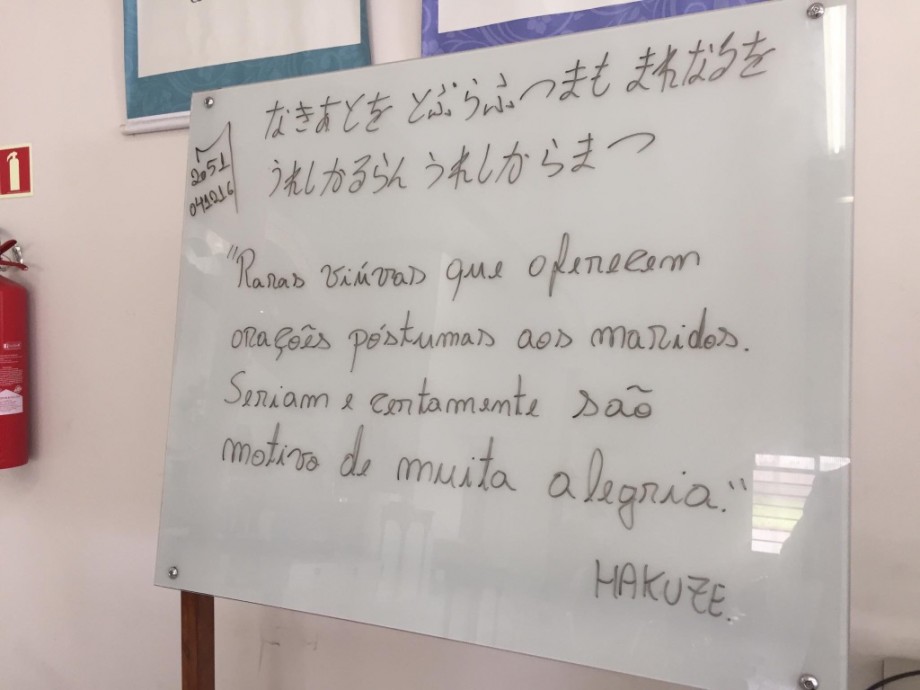 なきあとを とぶらふつまも まれなるを
うれしかるらん うれしからまつ
2051
041216
"Raras viúvas que oferecem
orações póstumas aos maridos.
Seriam e certamente são
motivo de muita alegria."
HAKUZE.